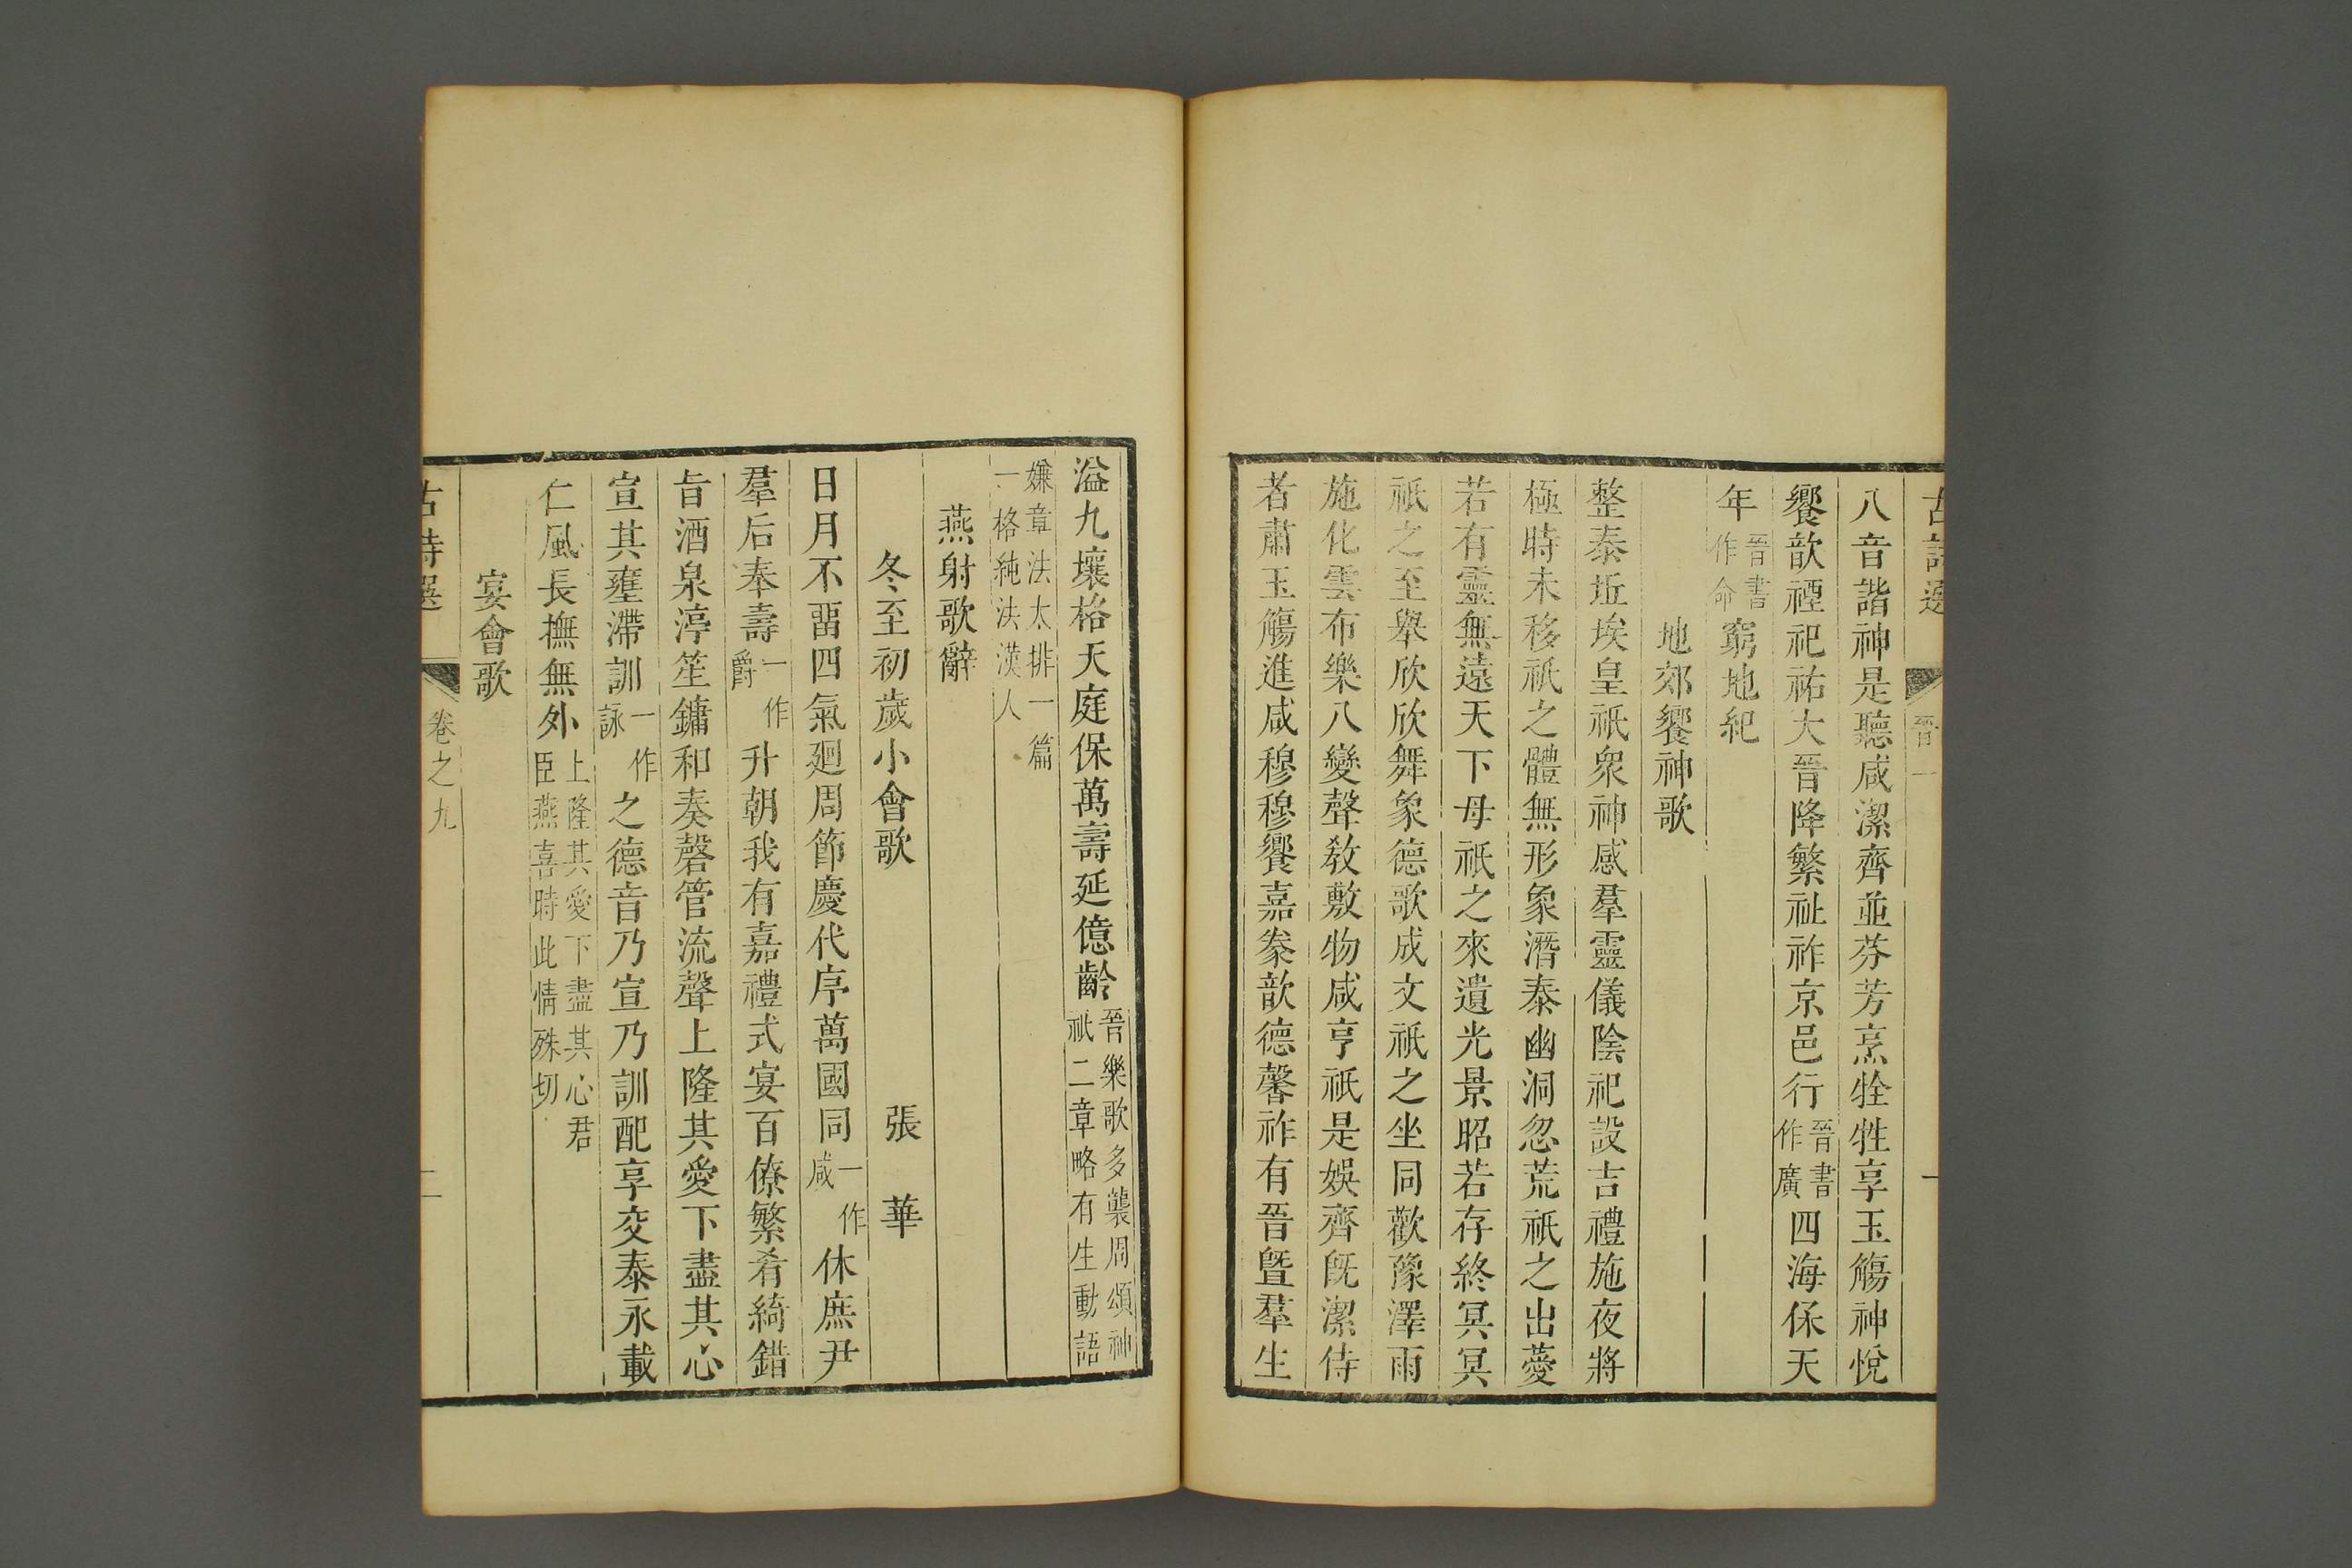 古詩選 晉一 一
八音諧神是聽咸潔齊並芬芳烹牷牲享玉觴神悅
饗歆禋祀祐大晉降繁祉祚京邑行晉書作廣四海保天
年晉書作命窮地紀
地郊饗神歌
整泰坵埃皇祇衆神感羣靈儀陰祀設吉禮施夜將
極時未移祇之體無形象潛泰幽洞忽荒祇之出薆
若有靈無遠天下母祇之來遺光景昭若存終冥冥
祇之至舉欣欣舞象德歌成文祇之坐同歡豫澤雨
施化雲布樂八變聲敎敷物咸亨祇是娛齊旣潔侍
者肅玉觴進咸穆穆饗嘉豢歆德馨祚有晉曁羣生
溢九壤格天庭保萬壽延億齡晉樂歌多襲周頌神祇二章略有生動語
嫌章法太排一篇一格純法漢人
燕射歌辭
冬至初歲小會歌 張華
日月不畱四氣廻周節慶代序萬國同一作咸休庶尹
羣后奉壽一作爵升朝我有嘉禮式宴百僚繁肴綺錯
旨酒泉渟笙鏞和奏磬管流聲上隆其愛下盡其心
宣其壅滯訓一作詠之德音乃宣乃訓配享交泰永載
仁風長撫無外上隆其愛下盡其心君臣燕喜時此情殊切
宴會歌
古詩選 卷之九 二